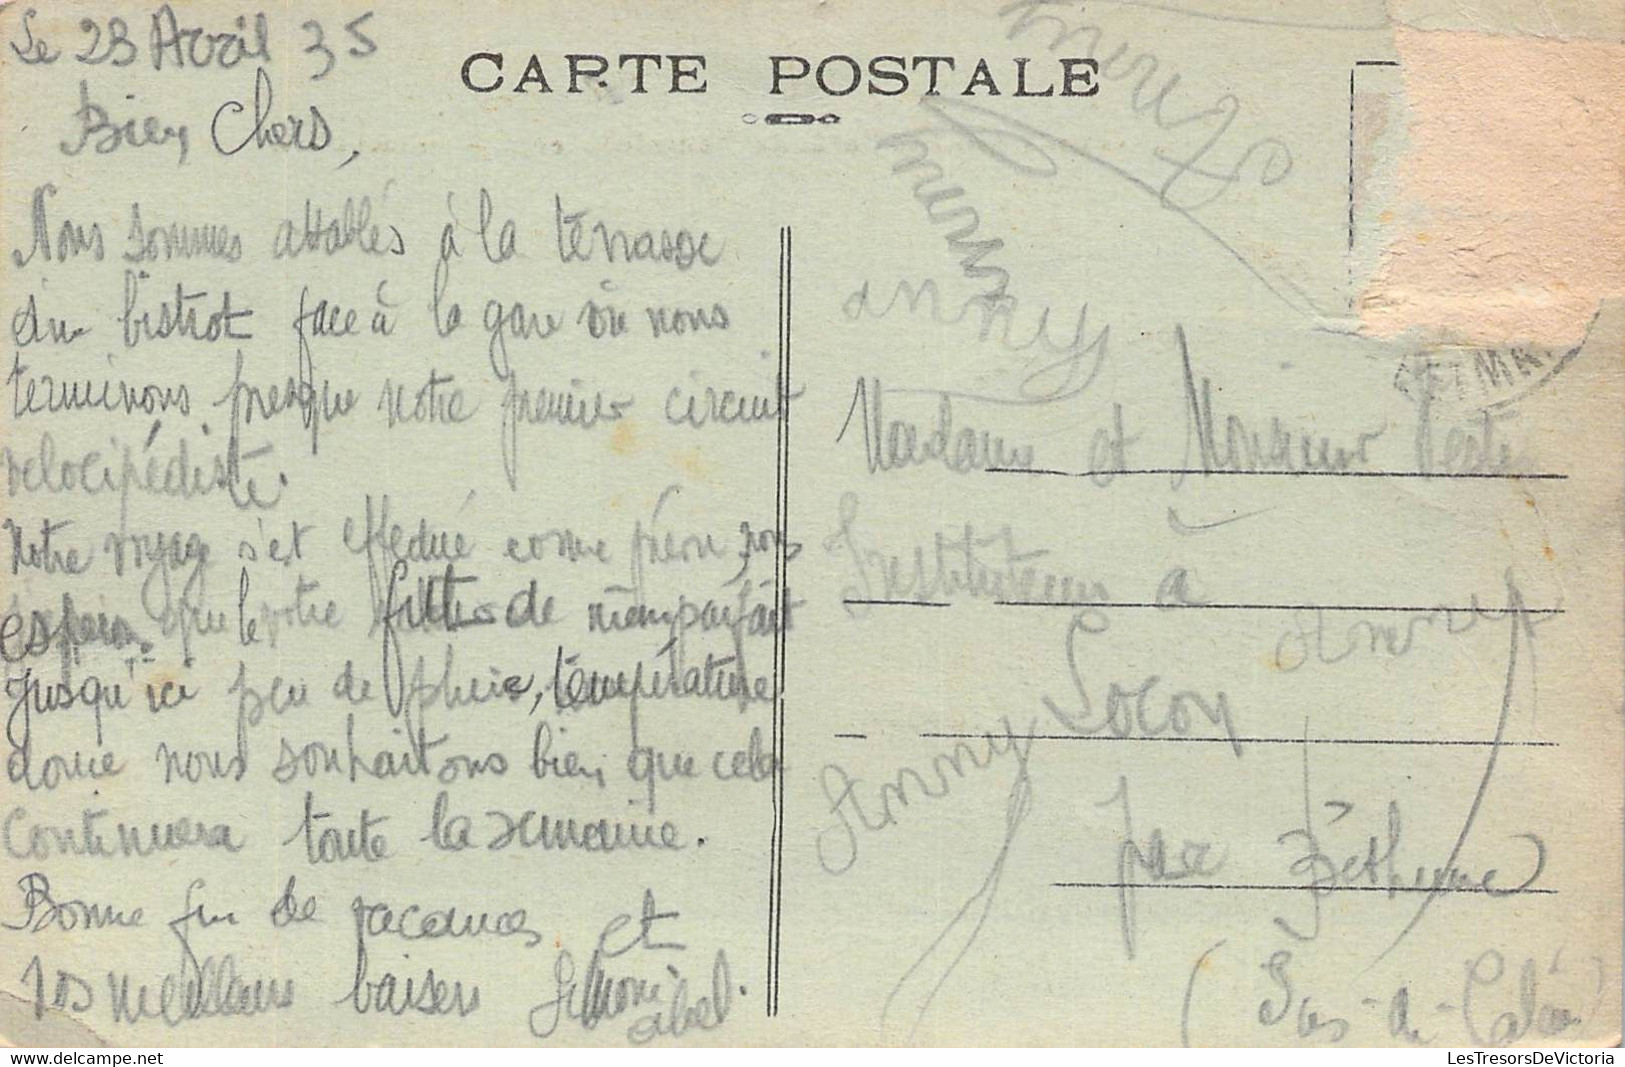 Le 23 Avril 35
CARTE POSTALE
Bien Chers,
Nous sommes attablés à la terrasse
d'un bistrot face à la gare où nous
terminons presque notre premier circuit
vélocipédiste.
Notre voyage s'est effectué comme prévu, nous
espérons que le votre de même parfait
Jusqu'ici peu de pluie, température
douce nous souhaitons bien que cela
continuera toute la semaine.
Bonne fin de vacances et
vos meilleurs baisers Simone
abel.
Anny
Madame et Monsieur
Instituteurs à
Locon
Anny
Anny
par Béthune
(Pas-de-Calais)
LesTresorsDeVictoria